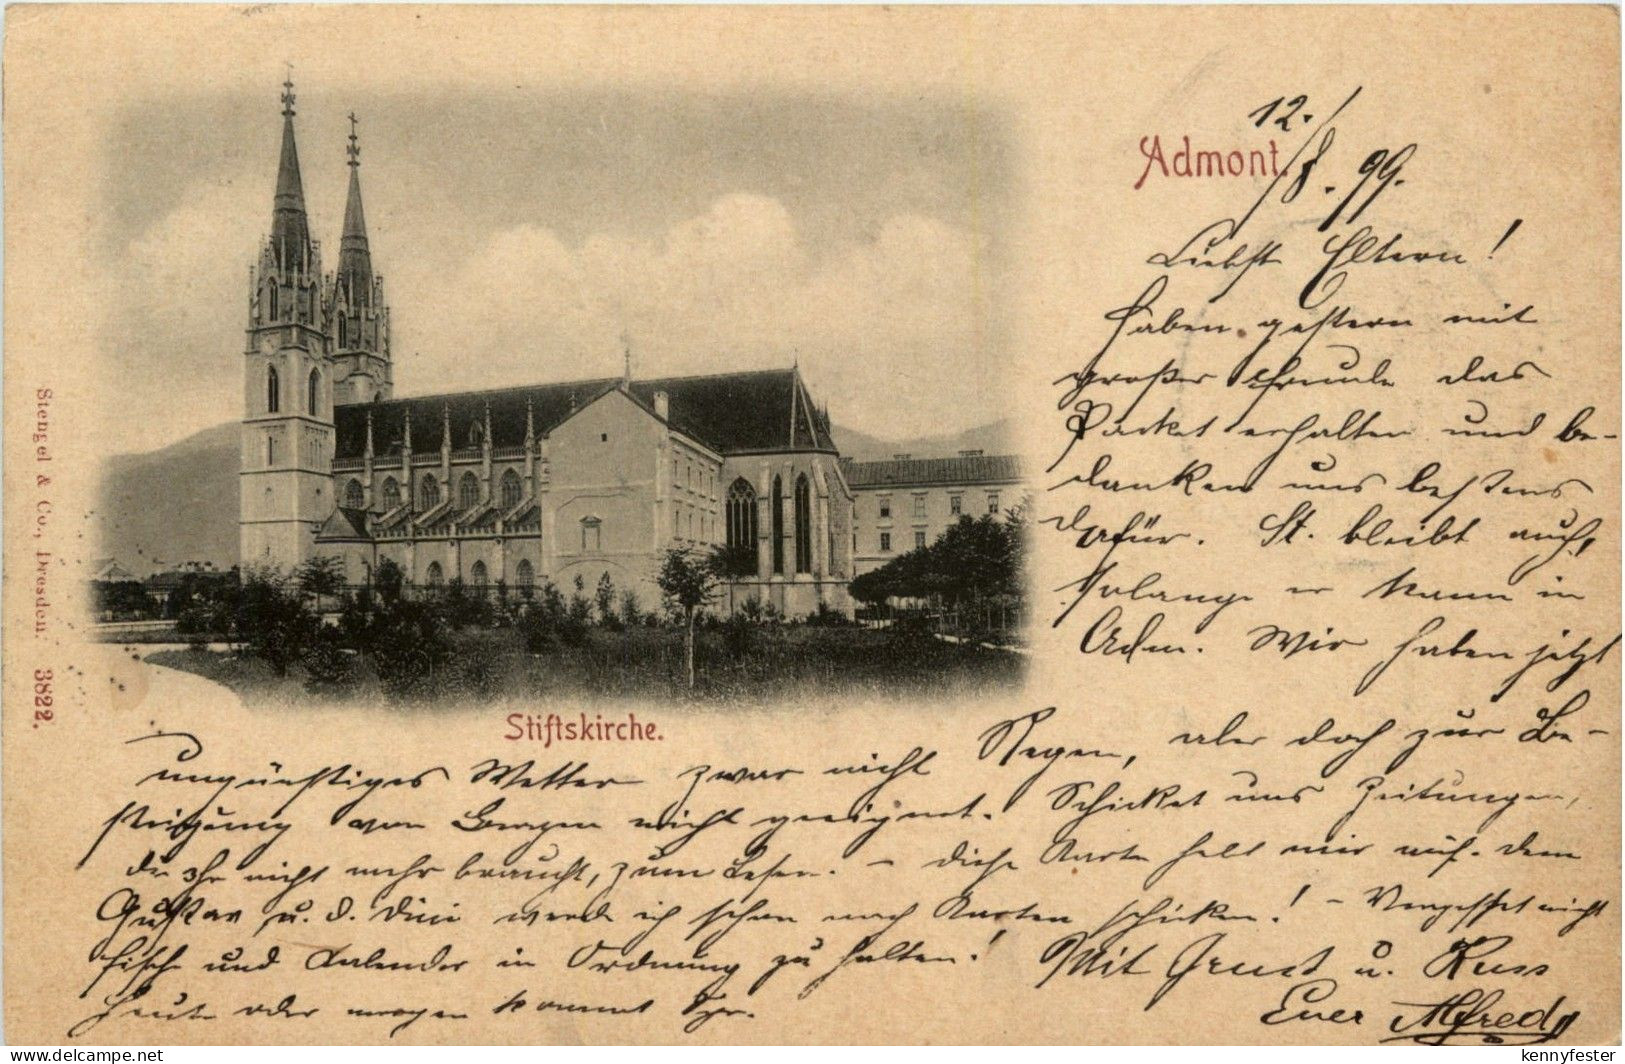 12./8. 99.
Admont.
Liebste Eltern!
Haben gestern mit
großer Freude das
Packet erhalten und be-
danken uns bestens
dafür. St. bleibt auch,
solange er kann in
Adm. Wir haben jetzt
Stiftskirche.
ungünstiges Wetter zwar nicht Regen, aber doch zur Be-
steigung von Bergen nicht geeignet. Schicket uns Zeitungen,
die Ihr nicht mehr braucht, zum Lesen. - Diese Karte hebt mir auf. dem
Gustav u. d. werde ich schon noch Karten schicken! - Vergesset nicht
Fische und Kalender in Ordnung zu halten! Mit Gruß u. Kuss
Heute oder morgen kommt
Euer Alfred
Stengel & Co., Dresden. 3822.
kennyfester
Posted for sale on delcampe.net